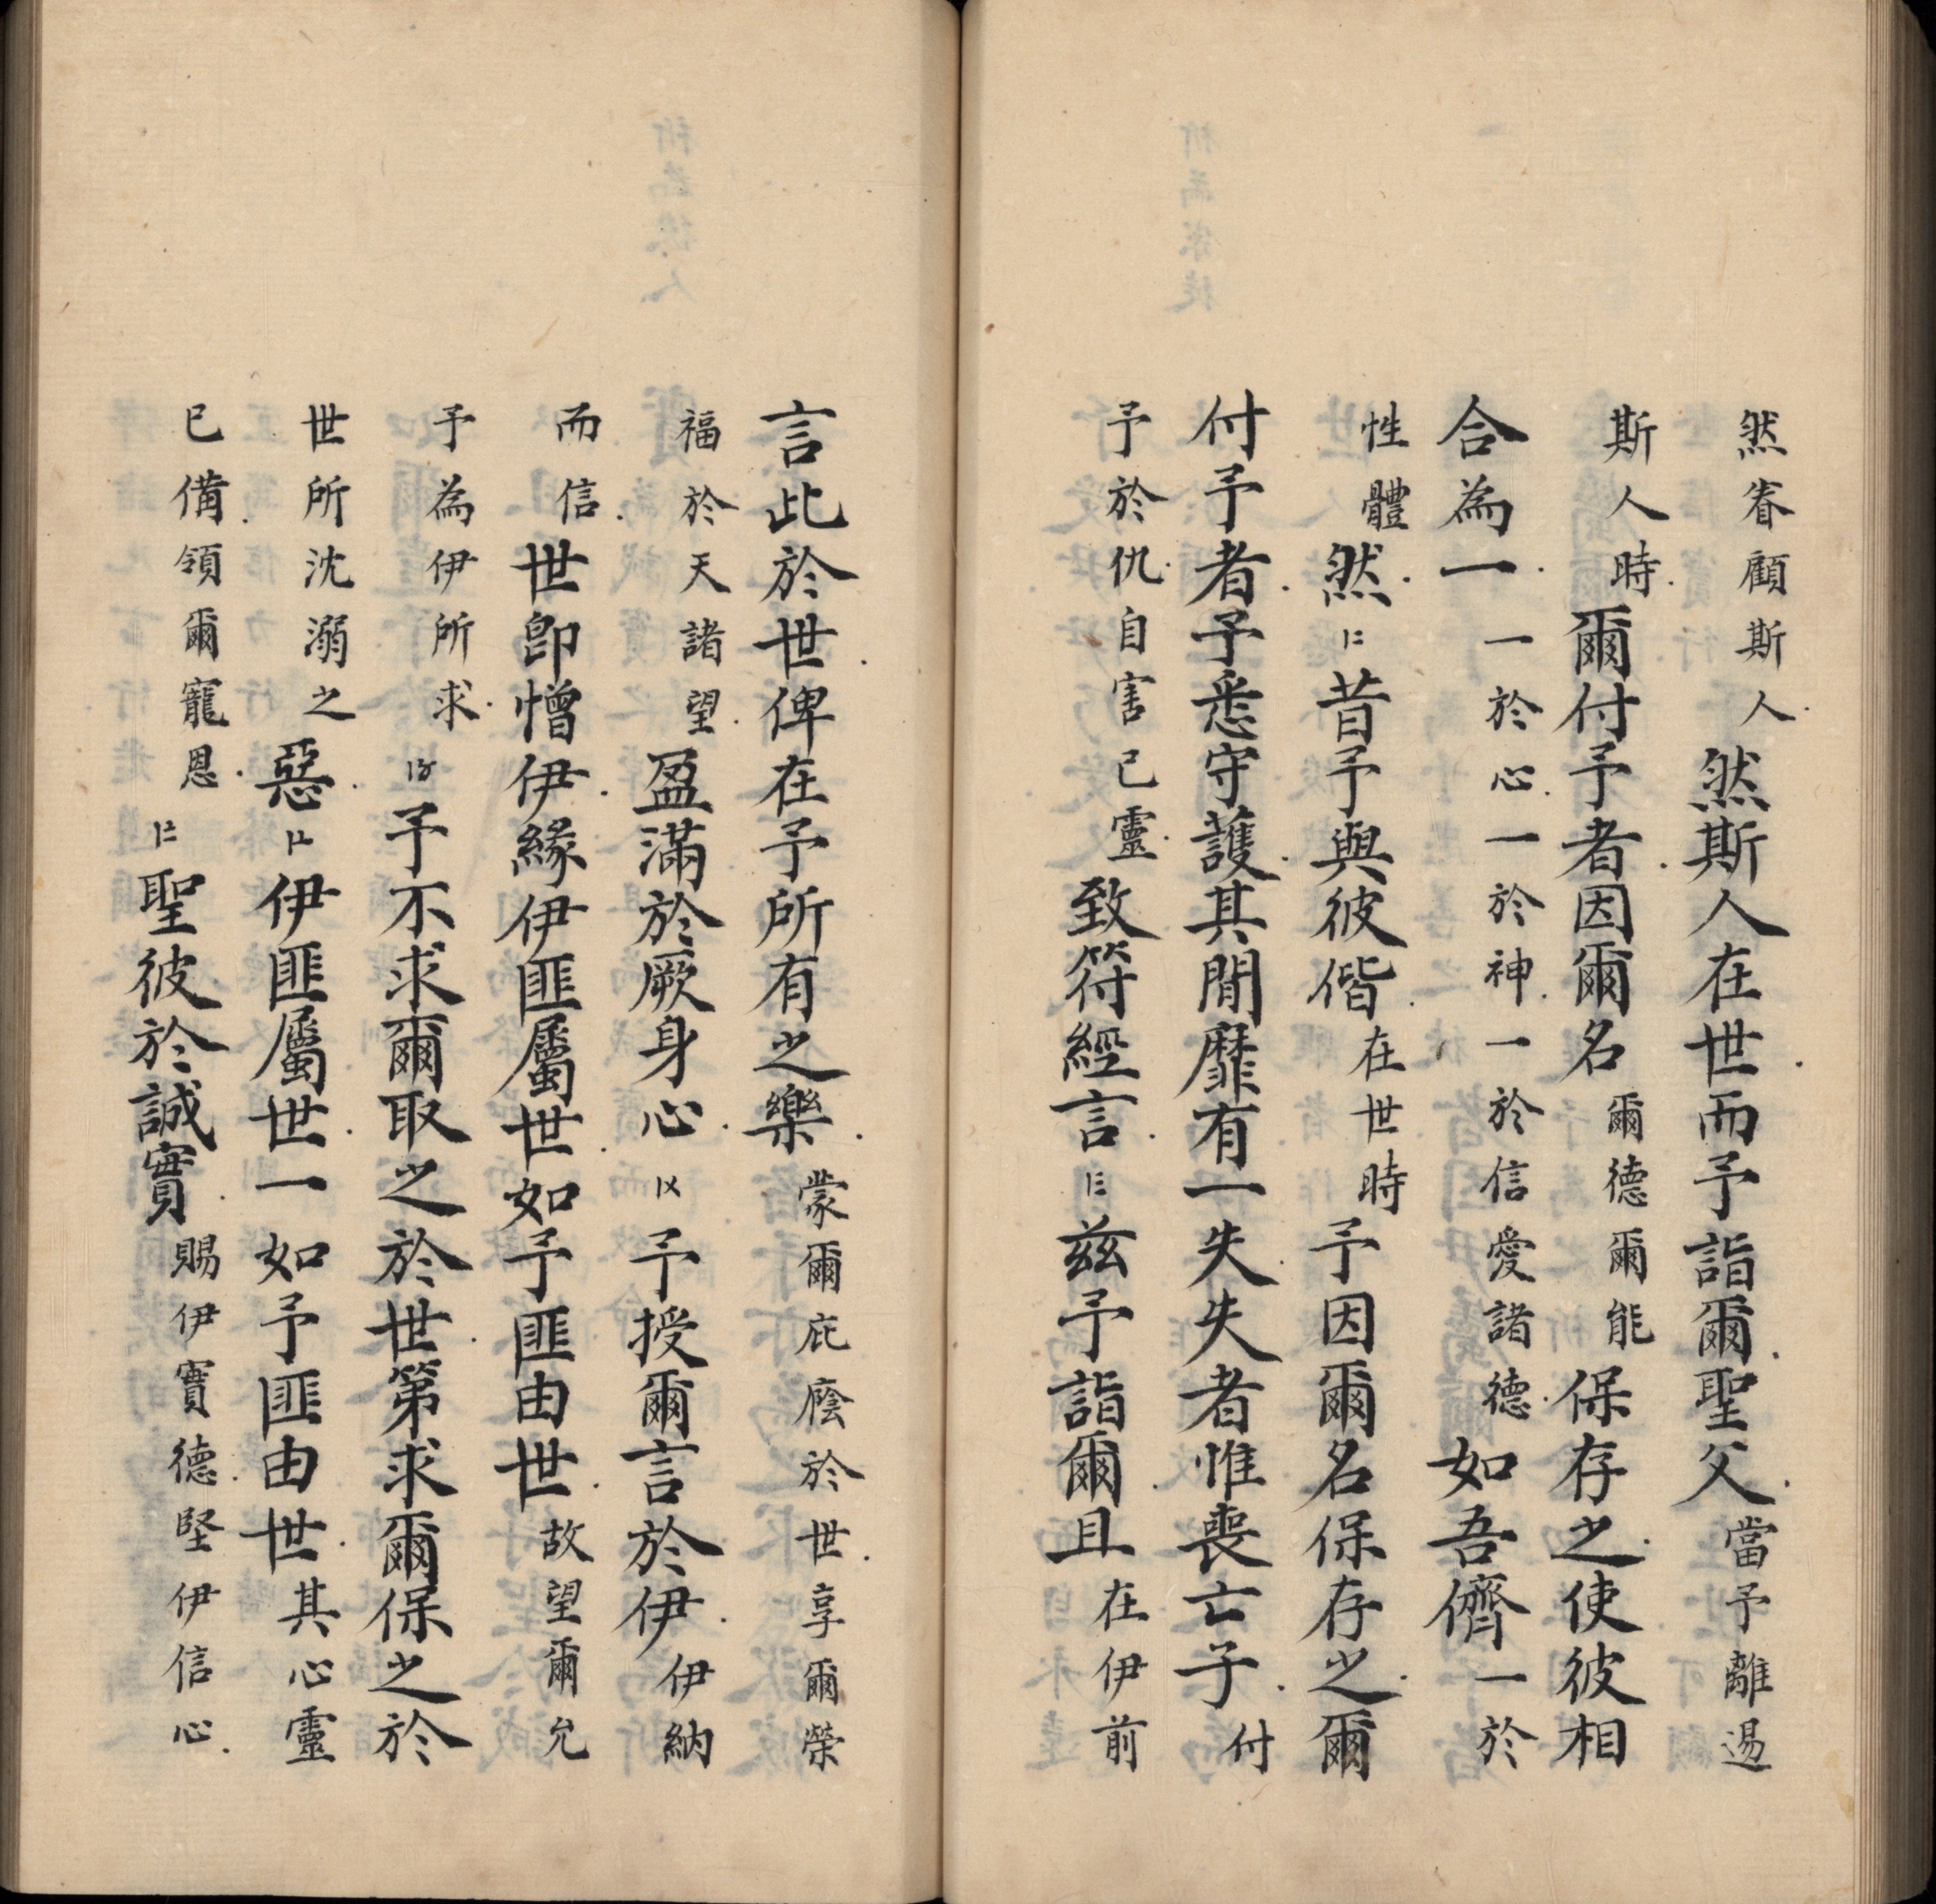 然眷顧斯人.然斯人在世.而予詣爾.聖父.當予離邊
斯人時.爾付予者.因爾名爾德爾能保存之.使彼相
合為一.一於心.一於神.一於信愛諸德.如吾儕一於
性體然.〢昔予與彼偕.在世時予因爾名保存之.爾
付予者.予悉守護.其間靡有一失.失者惟喪亡子.付
予於仇.自害己靈.致符經言.〣茲予詣爾.且在伊前
言此於世.俾在予所有之樂.蒙爾庇廕於世.享爾榮
福於天諸望.盈滿於厥身心.〤予授爾言於伊.伊納
而信.世即憎伊.緣伊匪屬世.如予匪由世.故望爾允
予為伊所求.〥予不求爾取之於世.第求爾保之於
世所沈溺之惡.〦伊匪屬世.一如予匪由世.其心靈
已備.領爾寵恩.〧聖彼於誠實.賜伊實德.堅伊信心.